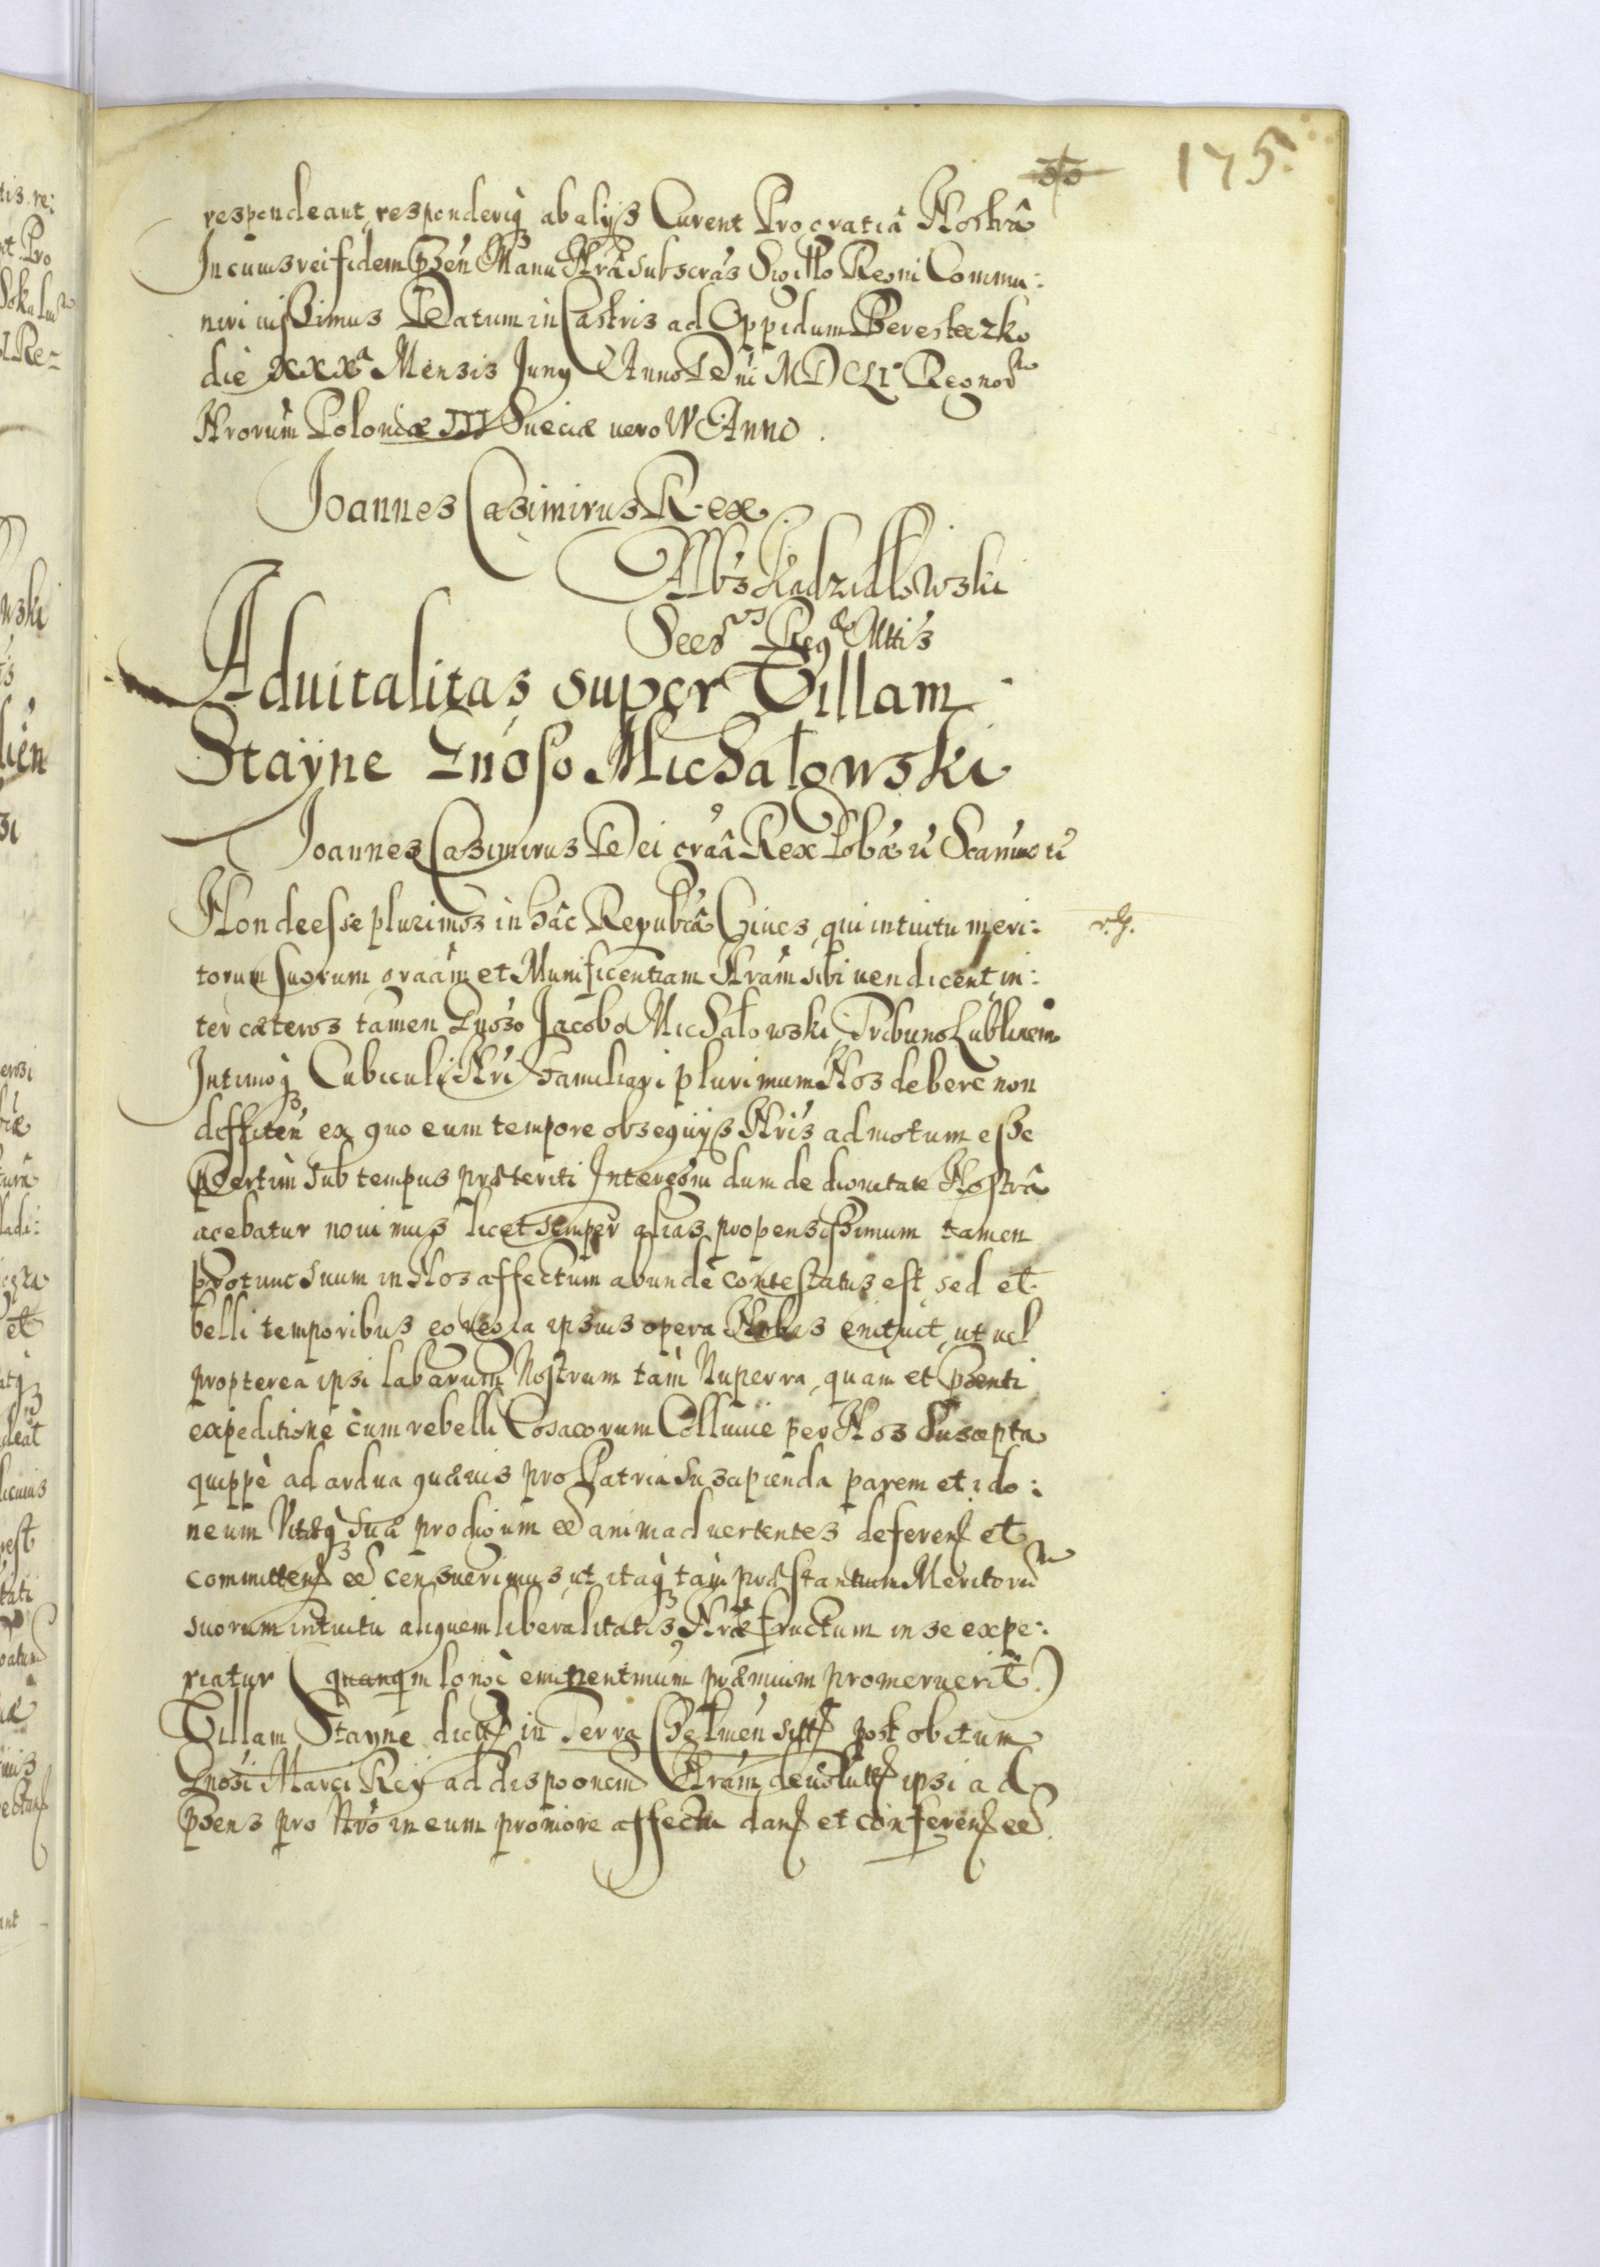 175.
respondeant, responderiq ab alijs Curent Pro gratiâ Nostrâ
In cuius rei fidem pñsen Manu Nrâ subscrâs Sigillo Regni Commu:
niri iussimus Datum in Castris ad Oppidum Beresteczko
die XXXa Mensis Juny Anno Dñi MDCLIo Regnor
Nrorum Poloniæ III Sueciæ uero IV Anno.
Joannes Casimirus Rex
Albs Kadzidłowski
Secrs Regæ Mttis
Aduitalitas super Villam
Stayne Gnoso Michałowski
Joannes Casimirus Dei graâ Rex Polæ ü Scanimus ü
Non deesse plurimos in hâc Republâ Ciues, qui intuitu meri:
torum suorum graâm et Munificentiam Nrâm sibi uendicent, in:
ter cæteros tamen Gnoso Jacobo Michałowski Tribuno Lublinen
Intimoq Cubiculi Nri Familiari plurimum Nos debere non
diffiteñ ex quo eum tempore obsequijs Nris admotum esse
psertim sub tempus præteriti Interegni dum de dignitate Nostrâ
agebatur nouimus licet semper alias propensissimum tamen
protunc suum in Nos affectum abundè contestatus est, sed et
belli temporibus eo regia ipsius opera Nobis enituit, ut uel
propterea ipsi labarum Nostrum tam Nuperra, quàm et psenti
expeditione cum rebelli Cosacorum Colluuie per Nos suscepta
quippè ad ardua quæuis pro Patria suscipienda parem et ido:
neum Vitæq suæ prodigum eê animaduertentes deferen et
committen eê censuerimus ut itaq tam præstantium Meritoru
suorum intuitu aliquem liberalitatis Nræ fructum in se expe:
riatur (quanqm longè eminentmum præmium promeruerit)
Villam Stayne dictt in Terra Chelmen sitt post obitum
Gnosi Marci Rey ad disponem Nrâm deuolutt ipsi ad
psens pro Nro in eum proniore affectu dan et conferen eê